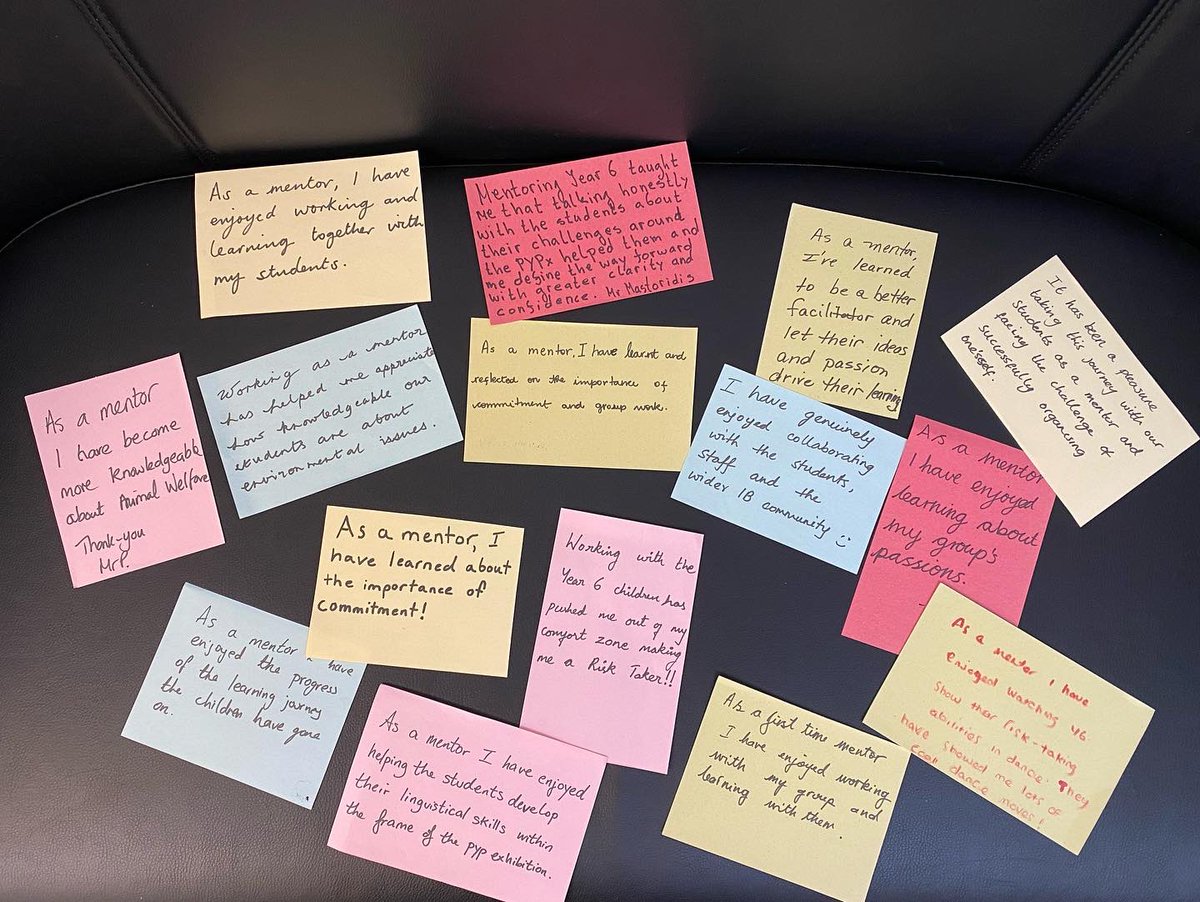 As a mentor, I have
enjoyed working and
learning together with
my students.
Mentoring Year 6 taught
me that talking honestly
with the students about
their challenges around
the PYPx helped them and
me define the way forward
with greater clarity and
confidence. Mr Mastoridis
As a mentor,
I've learned
to be a better
facilitator and
let their ideas
and passion
drive their learning
It has been a pleasure
taking this journey with our
students as a mentor and
facing the challenge of
successfully organising
one'self.
As a mentor
I have become
more knowledgeable
about Animal Welfare
Thank-you
MrP.
Working as a mentor
has helped me appreciate
how knowledgeable our
students are about
environmental issues.
As a mentor, I have learnt and
reflected on the importance of
commitment and group work.
I have genuinely
enjoyed collaborating
with the students,
staff and the
wider IB community
As a mentor
I have enjoyed
learning about
my group's
passions.
As a mentor, I
have learned about
the importance of
commitment!
Working with the
Year 6 children has
pushed me out of my
comfort zone making
me a Risk Taker!!
As a mentor have
enjoyed the progress
of the learning journey
the children have gone
on.
As a mentor I have enjoyed
helping the students develop
their linguistical skills within
the frame of the PYP exhibition.
As a first time mentor
I have enjoyed working
with my group and
learning with them.
As a mentor I have
enjoyed watching Y6
show their risk-taking
abilities in dance. They
have showed me lots of
cool dance moves!